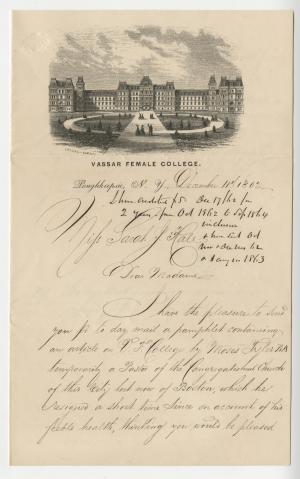 VASSAR FEMALE COLLEGE.
Poughkeepsie, N. Y., December 11th 1862
I have credited $5 Dec 17/62 for
2 years from Oct 1862 to Sep 1864
inclusive
Miss Sarah J Hale
& have sent Oct
Nov & Dec Nos 62
& Jany no 1863
Dear Madame
I have the pleasure to send
you pr to day mail a pamphlet containing
an article on V. F. College by Moses Tyler
temporarily a Pastor of the Congregational Church
of this City but now of Boston, which he
resigned a short time since on account of his
feeble health, thinking you would be pleased